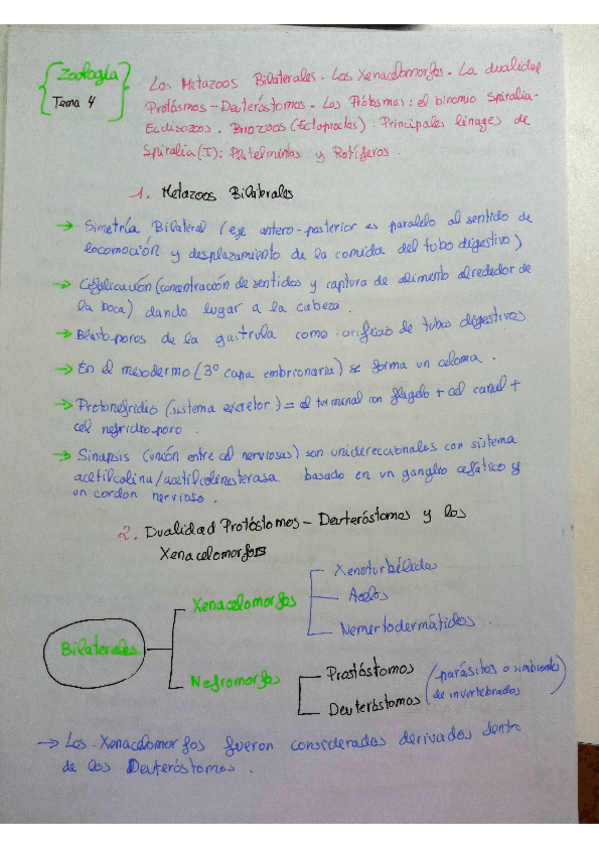 Zoología
Tema 4
Los Metazoos Bilaterales. Los Xenacelomorfos. La dualidad
Protóstomos - Deuteróstomos. Los Protóstomos: el binomio Spiralia-
Ecdisozoos. Briozoos (Ectoproctos). Principales linages de
Spiralia (I): Platelmintos y Rotíferos.
1. Metazoos Bilaterales
→ Simetría Bilateral (eje antero-posterior es paralelo al sentido de
locomoción y desplazamiento de la comida del tubo digestivo)
→ Cefalización (concentración de sentidos y captura de alimento alrededor de
la boca) dando lugar a la cabeza.
→ Blastoporos de la gastrula como orificio de tubos digestivos
→ En el mesodermo (3º capa embrionaria) se forma un celoma.
→ Protonefridio (sistema excretor) = cel terminal con flagelo + cel canal +
cel nefridioporo.
→ Sinapsis (unión entre cel nerviosas) son unidereccionales con sistema
acetilcolina/acetilcolinesterasa basado en un ganglio cefático y
un cordon nervioso.
2. Dualidad Protóstomos - Deuteróstomos y los
Xenacelomorfos
Bilaterales
Xenacelomorfos
Xenoturbélidos
Acelos
Nemertodermátidos
Nefromorfos
Prostóstomos
Deuteróstomos
(parásitos o simbiontes
de invertebrados)
→ Los Xenacelomorfos fueron considerados derivados dentro
de los Deuteróstomos.